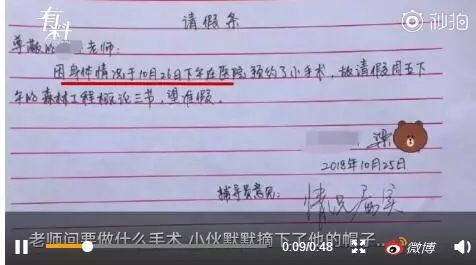 有料
秒拍
请假条
尊敬的 老师:
因身体情况于10月26日下午在医院预约了小手术,故请假周五下
午的森林工程概论三节,望准假。
梁
2018年10月25日
辅导员意见: 情况属实
老师问要做什么手术 小伙默默摘下了他的帽子...
0:09/0:48
微博